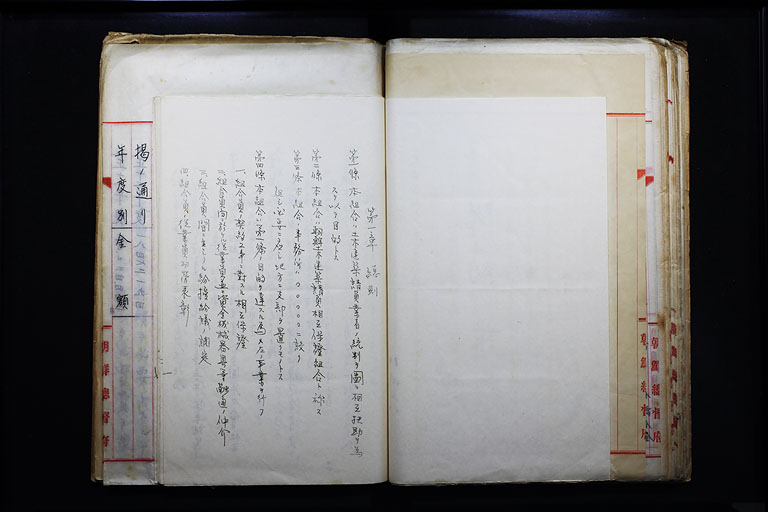 第一章 總則
第一條 本組合ハ土木建築請負業者ノ統制ヲ圖リ相互扶助ヲ為
スヲ以テ目的トス
第二條 本組合ハ朝鮮土木建築請負相互保證組合ト称ス
第三條 本組合ノ事務所ハ〇〇〇〇ニ設ク
但シ必要ニ應シ地方ニ支部ヲ置クコトヲ
第四條 本組合ハ第一條ノ目的ヲ達スル為メ左ノ事業ヲ行フ
一、組合員ノ契約工事ニ對スル相互保證
二、組合員間ニ於ケル從業員並ニ資金機械器具等融通ノ仲介
三、組合員間ニ生シタル紛擾紛議ノ調定
四、組合員ノ從業員ノ功労表彰
揭ノ通リ
年度別金額
朝鮮總督府
朝鮮總督府